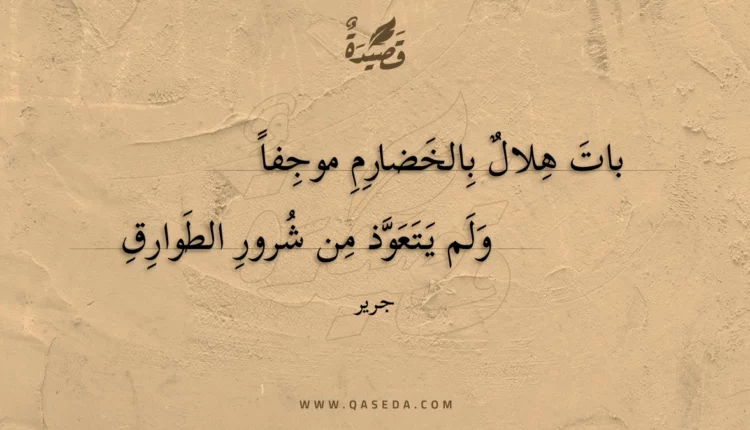 قَصِيدَةٌ
باتَ هِلالٌ بِالخَضارِمِ موجِفاً
وَلَم يَتَعَوَّذ مِن شُرورِ الطَوارِقِ
جرير
WWW.QASEDA.COM